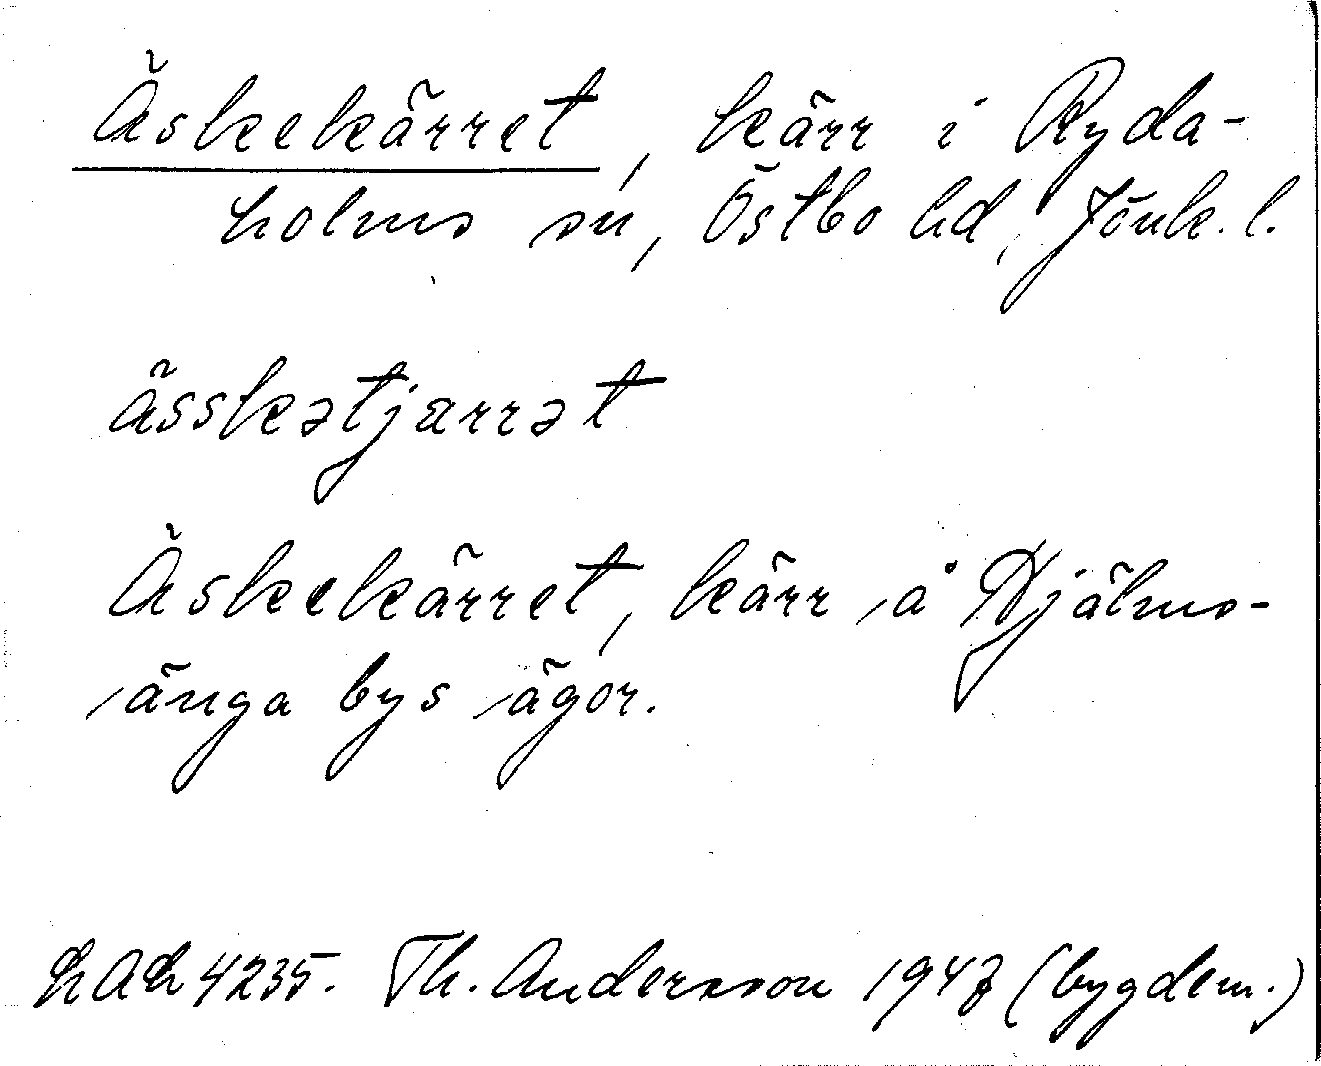 Äskekärret, kärr i Ryda-
holms sn, Östbo hd, Jönk. l.
ässkətjärrət
Äskekärret, kärr å Hjälms-
änga bys ägor.
LAL 4235. Th. Andersson 1947 (bygdem.)